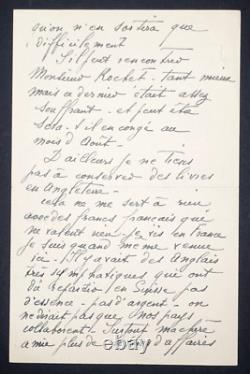 qu'on n'en sortira que
difficilement
S'il peut rencontrer
Monsieur Rochet - tant mieux
mais ce dernier était assez
souffrant - et peut être
sera-t-il en congé au
mois d'Août -
D'ailleurs je ne tiens
pas à conserver des livres
en Angleterre -
cela ne me sert à rien
avec des francs français qui
ne valent rien - je vis en France
je suis quand même venue
ici - Il y avait des Anglais
très sympathiques qui ont
dû repartir - en Suisse pas
d'essence - pas d'argent - on
ne dirait pas que nos pays
collaborent - Surtout ma chère
amie plus de d'affaires